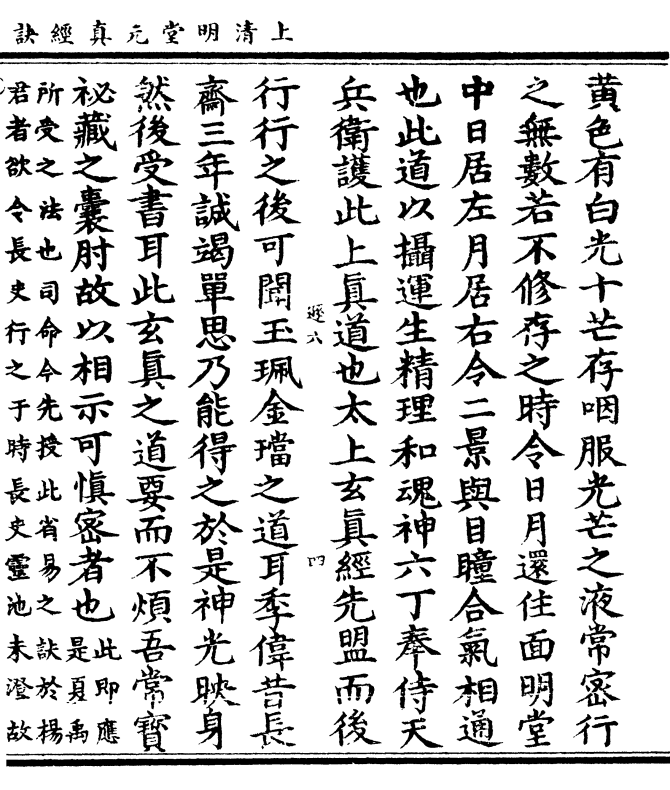 上清明堂元真經訣
黃色有白光十芒存咽服光芒之液常密行
之無數若不修存之時令日月還住面明堂
中日居左月居右令二景與目瞳合氣相通
也此道以攝運生精理和魂神六丁奉侍天
兵衛護此上真道也太上玄真經先盟而後
遜六
四
行行之後可聞玉珮金璫之道耳季偉昔長
齋三年誠竭單思乃能得之於是神光映身
然後受書耳此玄真之道要而不煩吾常寶
祕藏之囊肘故以相示可慎密者也此即應
是夏禹
所受之法也司命今先授此省易之訣於楊
君者欲令長史行之于時長史靈池未澄故